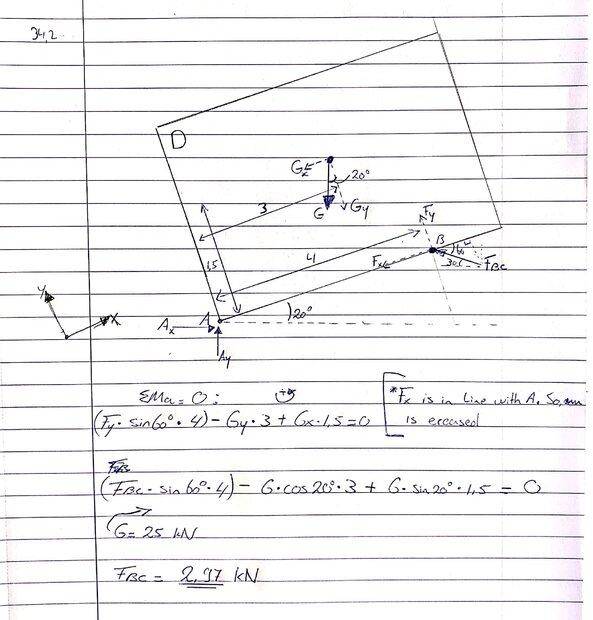 34,2
D
Gx
20°
G
Gy
3
1,5
4
Fy
B
60°
Fx
30°
FBC
Y
X
Ax
A
20°
Ay
ΣMa = 0 : +
(Fy · sin60° · 4) - Gy · 3 + Gx · 1,5 = 0
*Fx is in line with A. So,
is
(FBC · sin 60° · 4) - G · cos20° · 3 + G · sin 20° · 1,5 = 0
G = 25 kN
FBC = 2,97 kN